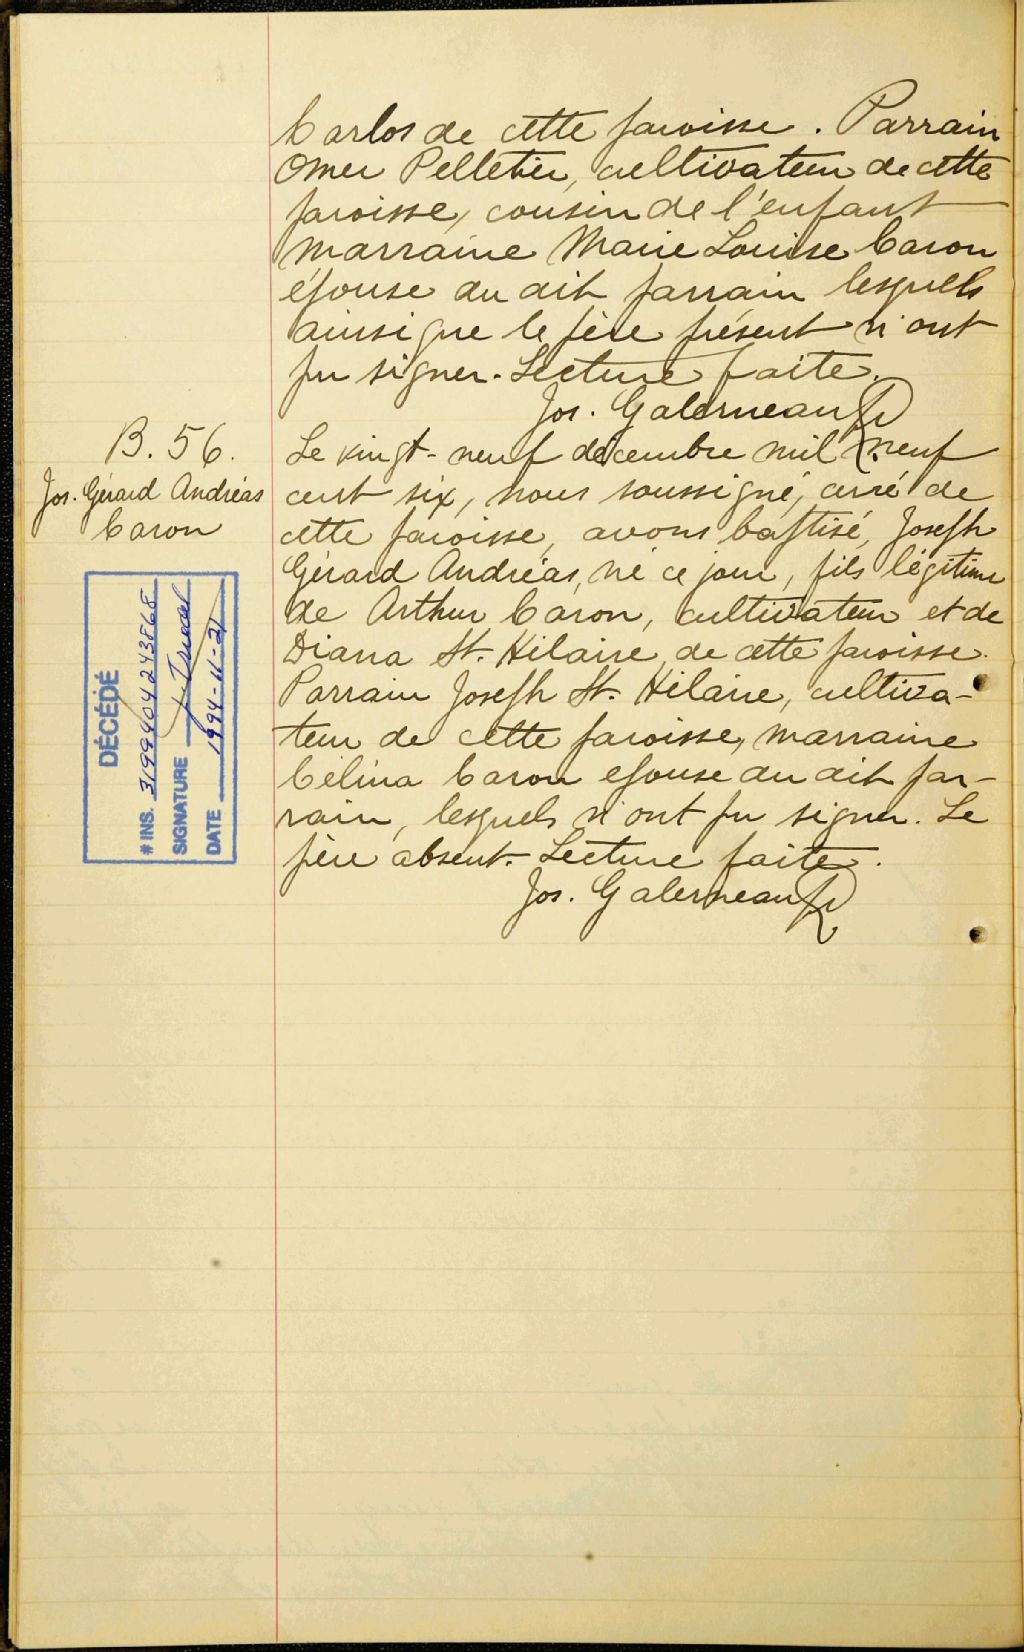 Carlos de cette paroisse. Parrain
Omer Pelletier, cultivateur de cette
paroisse, cousin de l'enfant
marraine Marie Louise Caron
épouse du dit parrain lesquels
ainsi que le père présent n'ont
pu signer. Lecture faite.
Jos. Galerneau Ptr
B. 56.
Jos. Gérard Andréas
Caron
Le vingt-neuf décembre mil neuf
cent six, nous soussigné, curé de
cette paroisse, avons baptisé, Joseph
Gérard Andréas, né ce jour, fils légitime
de Arthur Caron, cultivateur et de
Diana St. Hilaire de cette paroisse.
Parrain Joseph St. Hilaire, cultiva-
teur de cette paroisse, marraine
Célina Caron épouse du dit par-
rain, lesquels n'ont pu signer. Le
père absent. Lecture faite.
Jos. Galerneau Ptr
DÉCÉDÉ
# INS. 3199404243868
SIGNATURE
DATE 1994-11-21